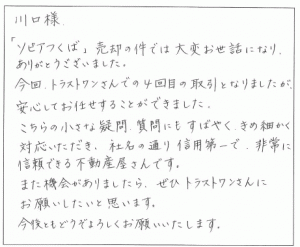 川口様.
「ソピアつくば」売却の件では大変お世話になり.
ありがとうございました。
今回.トラストワンさんでの4回目の取引となりましたが.
安心してお任せすることができました.
こちらの小さな疑問.質問にもすばやく.きめ細かく
対応いただき.社名の通り信用第一で.非常に
信頼できる不動産屋さんです。
また機会がありましたら.ぜひトラストワンさんに
お願いしたいと思います。
今後ともどうぞよろしくお願いいたします。